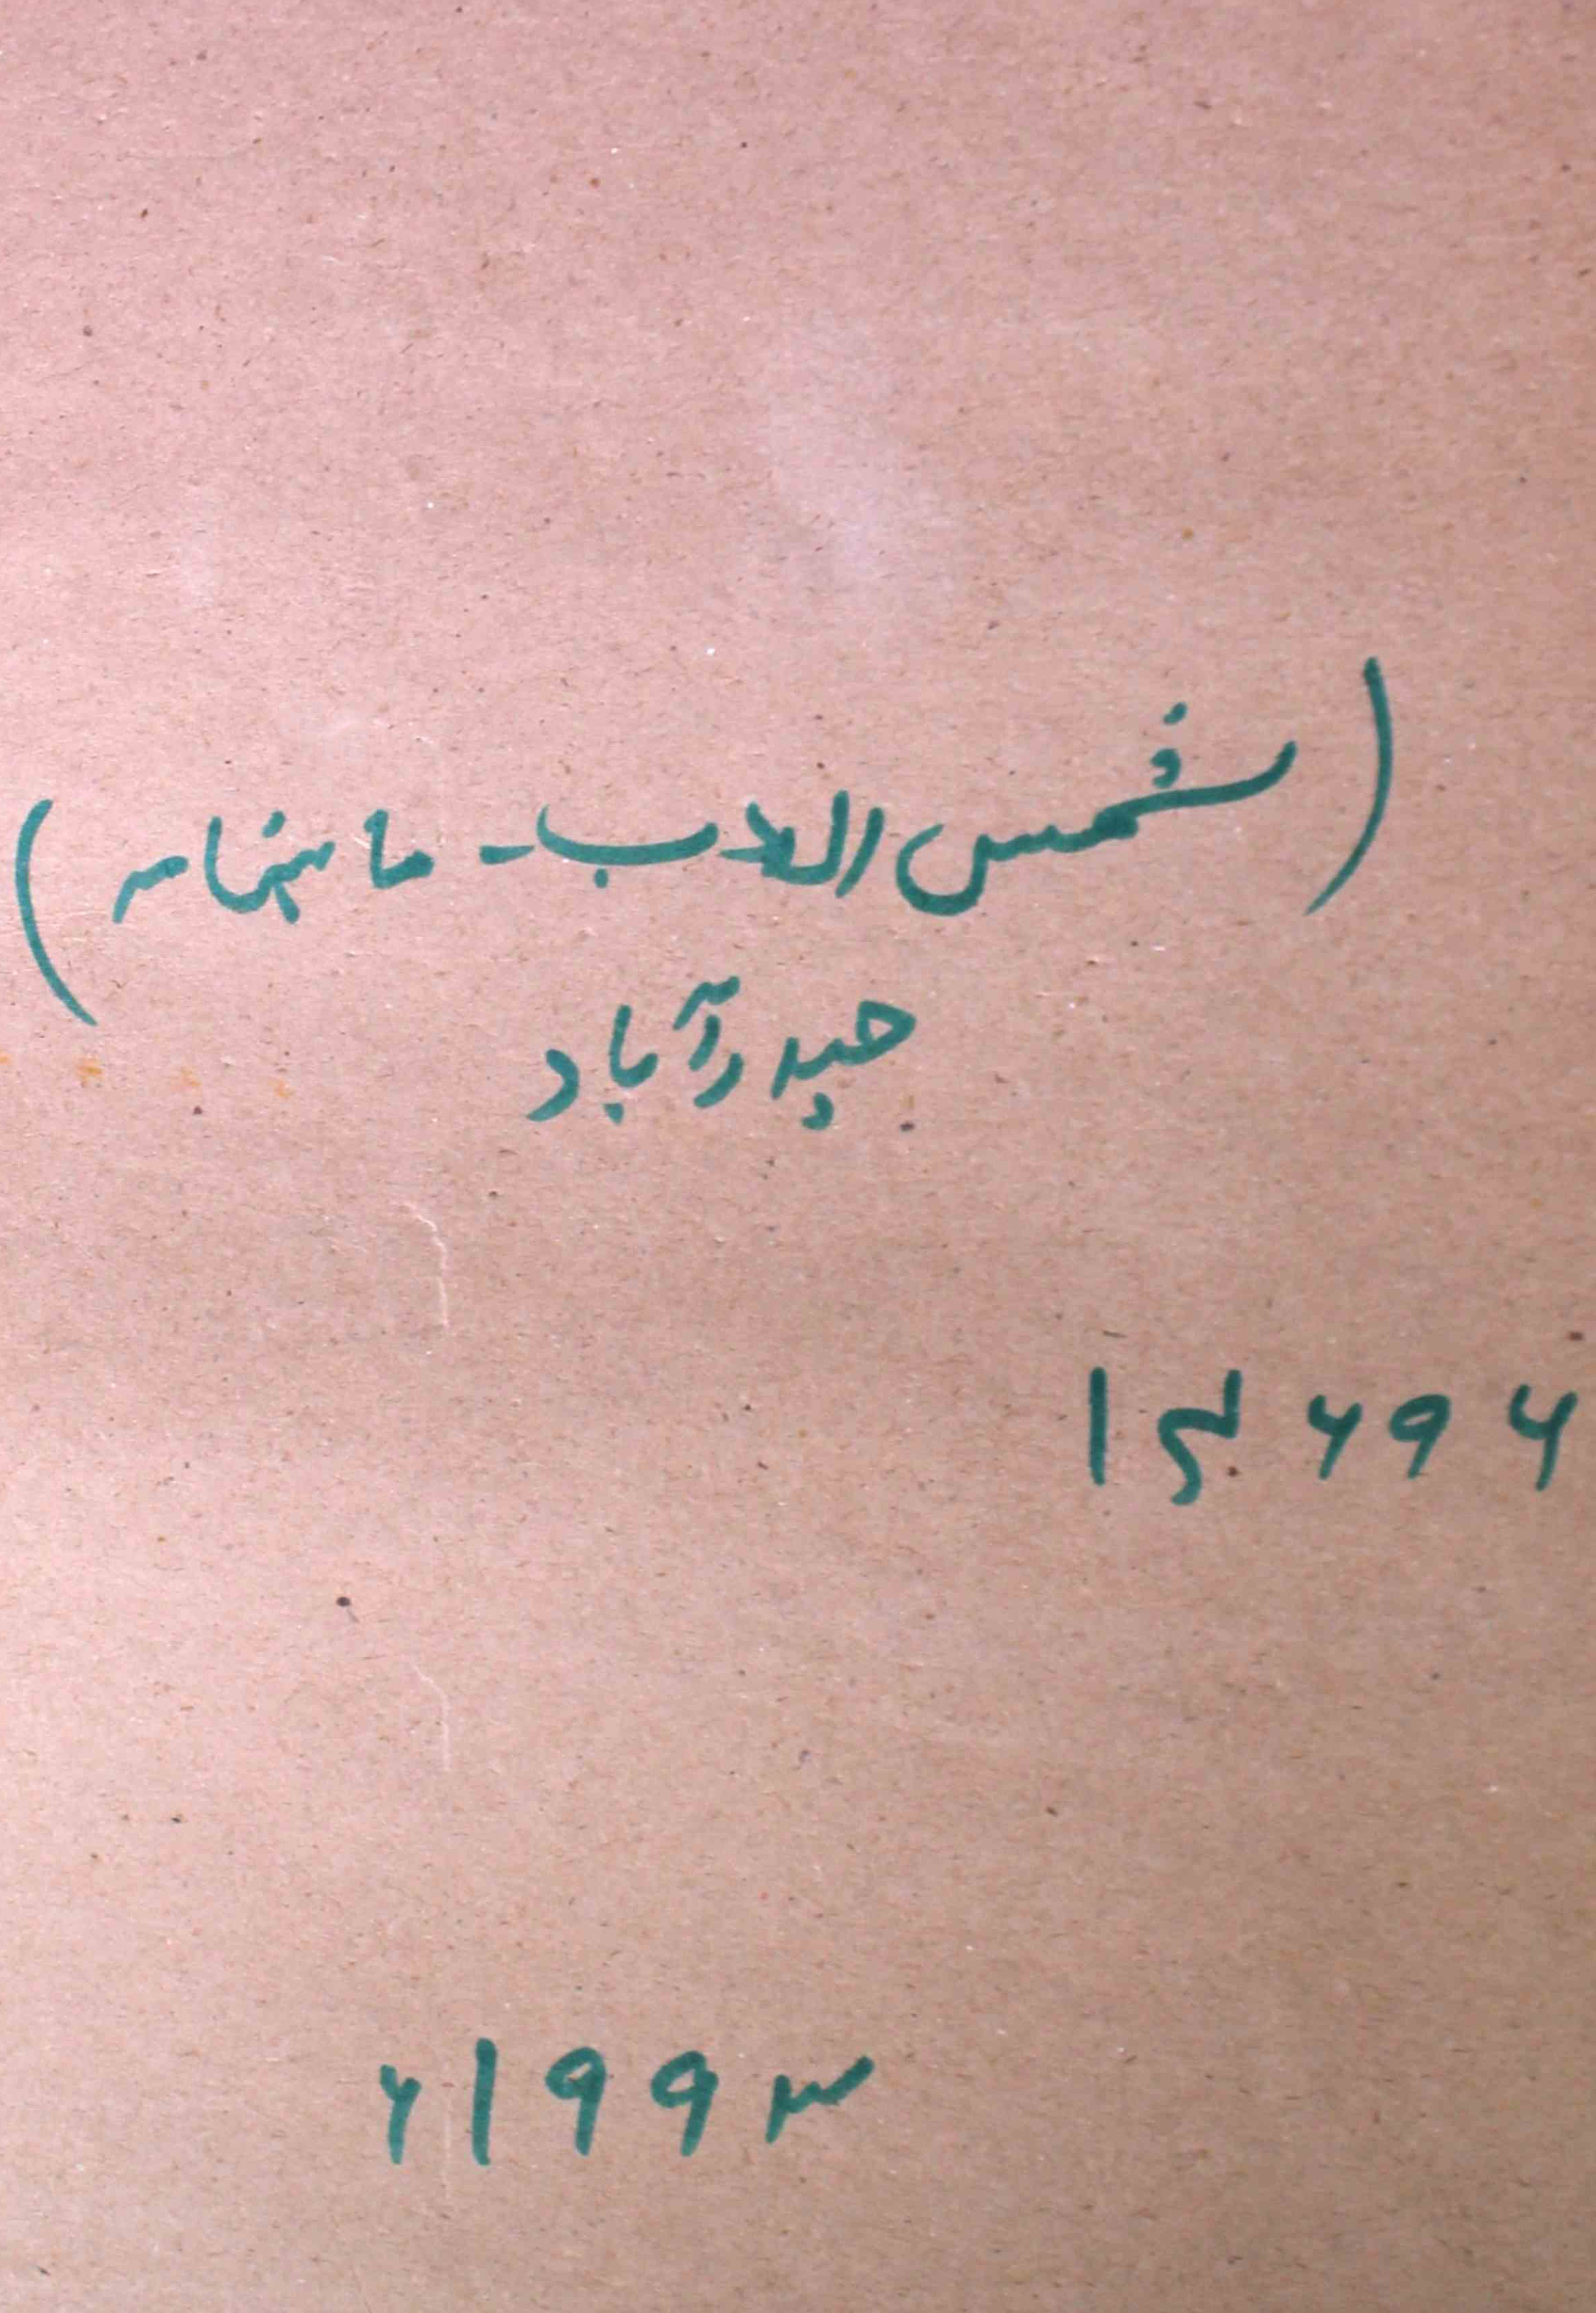 (شمس الادب - ماہنامہ)
حیدرآباد
۱۴۶۹۶
۱۹۹۳ء